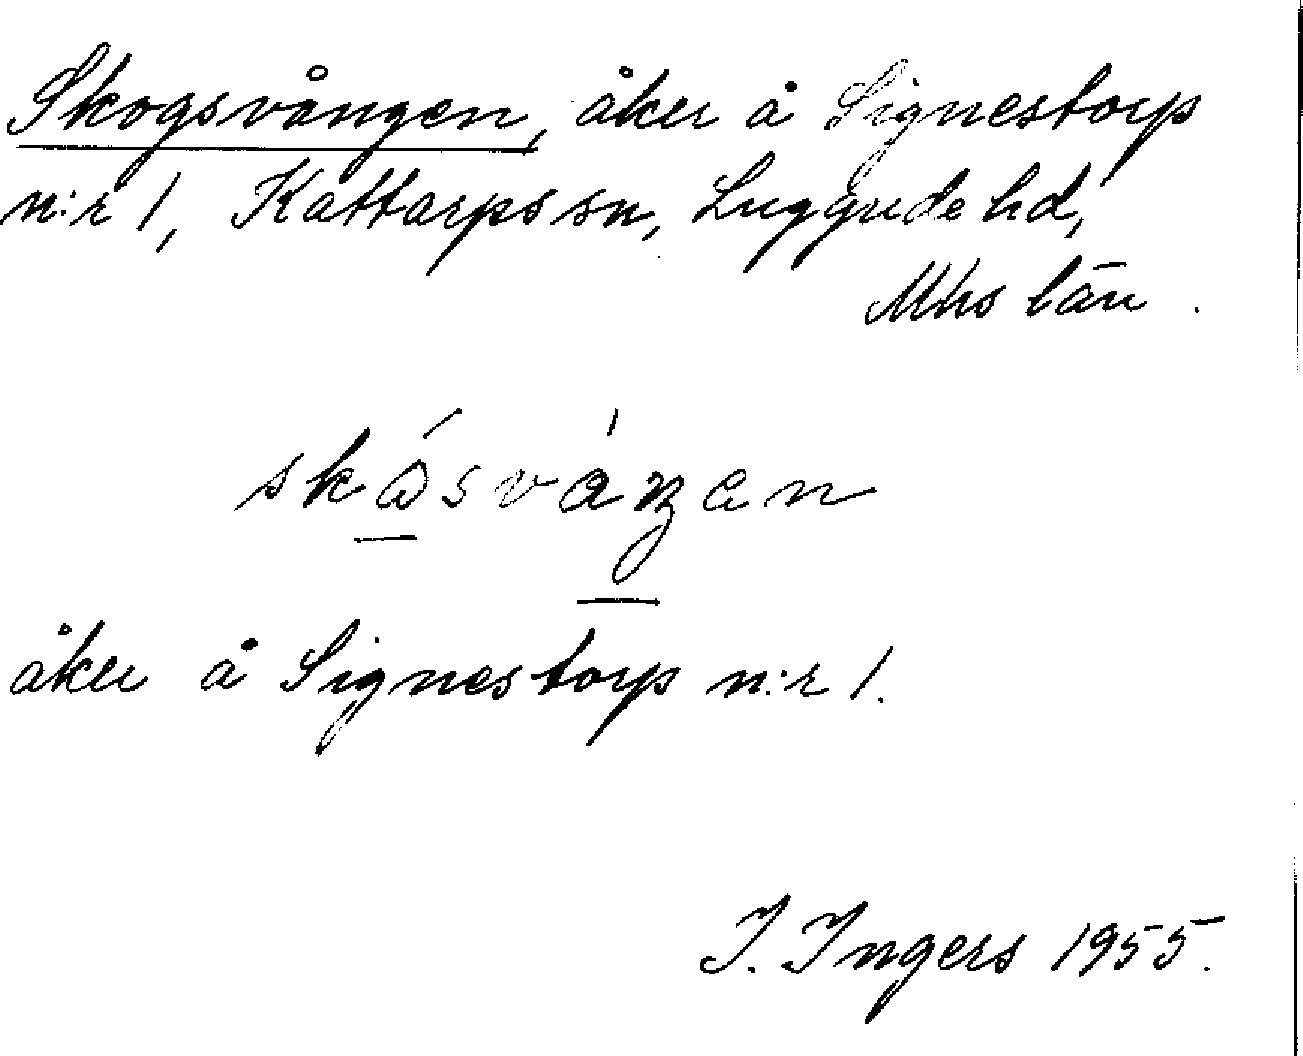 Skogsvången, åker å Signestorp
n:r 1, Kattarps sn, Luggude hd,
Mhs län.
åker å Signestorp n:r 1.
I. Ingers 1955.